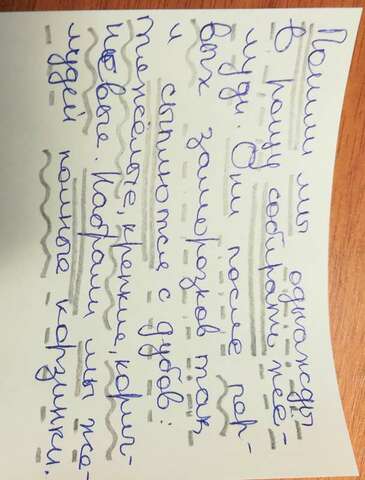 Пошли мы однажды
в рощу собирать жё-
луди. Они после пер-
вых заморозков так
и сыплются с дубов:
тяжёлые, крепкие, корич-
невые. Набрали мы же-
лудей полные корзинки.